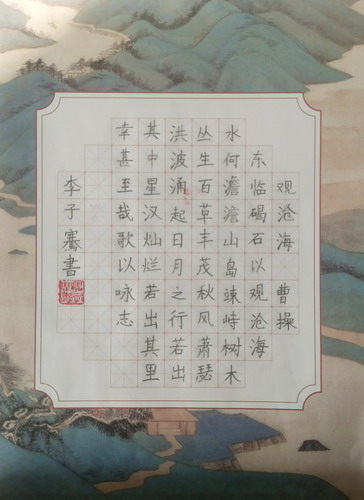 观沧海 曹操
东临碣石以观沧海
水何澹澹山岛竦峙树木
丛生百草丰茂秋风萧瑟
洪波涌起日月之行若出
其中星汉灿烂若出其里
幸甚至哉歌以咏志
李子骞書